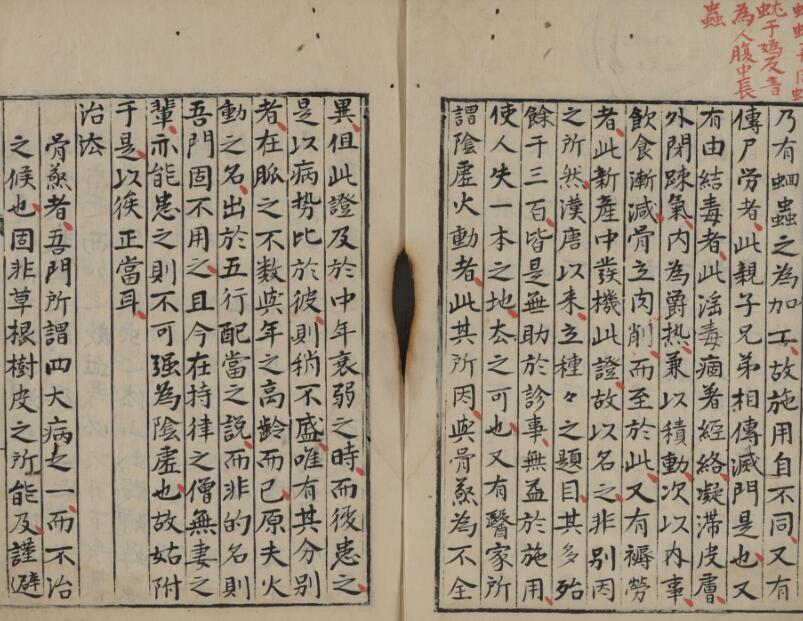 蚘于媯反音
為人腹中長
蟲
乃有蛔蟲之為加工、故施用自不同、又有
傳尸労者、此親子兄弟相傳滅門是也、又
有由結毒者、此淫毒痼著經絡凝滯皮膚、
外閉踈氣、内為爵热、兼以積動、次以内事、
飲食漸减骨立肉削、而至於此、又有褥勞
者、此新産中發機此證、故以名之非別因
之所然、漢唐以来、立種々之題目、其多殆
餘千三百、皆是無助於診事、無益於施用、
使人失一本之地、厺之可也、又有醫家所
謂陰虚火動者、此其所因、與骨蒸為不全
異、但此證及於中年衰弱之時、而後患之、
是以病勢比於彼、則稍不盛、唯有其分別
者、在脈之不数與年之高齡而已、原夫火
動之名、出於五行配當之説、而非的名則
吾門固不用之、且今在持律之僧無妻之
輩、亦能患之則不可强為陰虚也、故姑附
于是、以俟正當耳、
治法
骨蒸者、吾門所謂四大病之一、而不治
之候也、固非草根樹皮之所能及、謹避